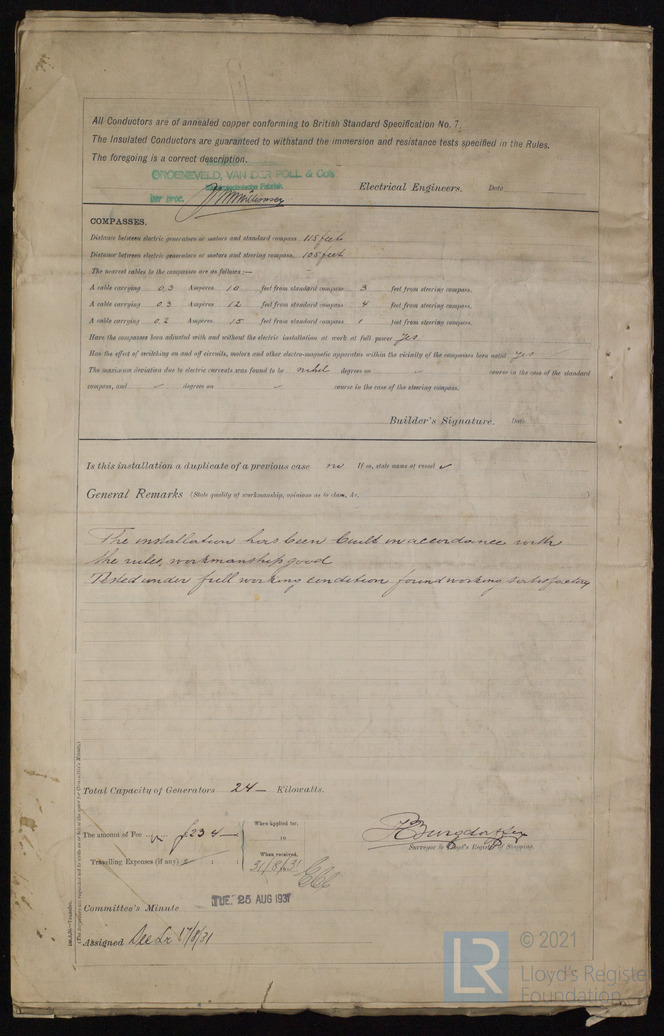 All Conductors are of annealed copper conforming to British Standard Specification No. 7.
The Insulated Conductors are guaranteed to withstand the immersion and resistance tests specified in the Rules.
The foregoing is a correct description.
GROENEVELD, VAN DER POLL & Co's
Electrotechnische Fabriek
per proc.
Electrical Engineers. Date
COMPASSES.
Distance between electric generators or motors and standard compass 115 feet
Distance between electric generators or motors and steering compass 105 feet
The nearest cables to the compasses are as follows:—
A cable carrying 0,3 Amperes 10 feet from standard compass 3 feet from steering compass.
A cable carrying 0.3 Amperes 12 feet from standard compass 4 feet from steering compass.
A cable carrying 0,2 Amperes 15 feet from standard compass 1 feet from steering compass.
Have the compasses been adjusted with and without the electric installation at work at full power yes
Has the effect of switching on and off circuits, motors and other electro-magnetic apparatus within the vicinity of the compasses been noted yes
The maximum deviation due to electric currents was found to be nihil degrees on course in the case of the standard
compass, and degrees on course in the case of the steering compass.
Builder's Signature. Date
Is this installation a duplicate of a previous case no If so, state name of vessel
General Remarks (State quality of workmanship, opinions as to class, &c.
The installation has been built in accordance with
the rules, workmanship good
Tested under full working condition found working satisfactory
Total Capacity of Generators 24 — Kilowatts.
The amount of Fee
When applied for,
19
Travelling Expenses (if any) £ : :
When received,
31/8/31
Surveyor to Lloyd's Register of Shipping.
TUE. 25 AUG 1931
Committee's Minute
Assigned See Lr 17/8/31
© 2021
LR
Lloyd's Register
Foundation